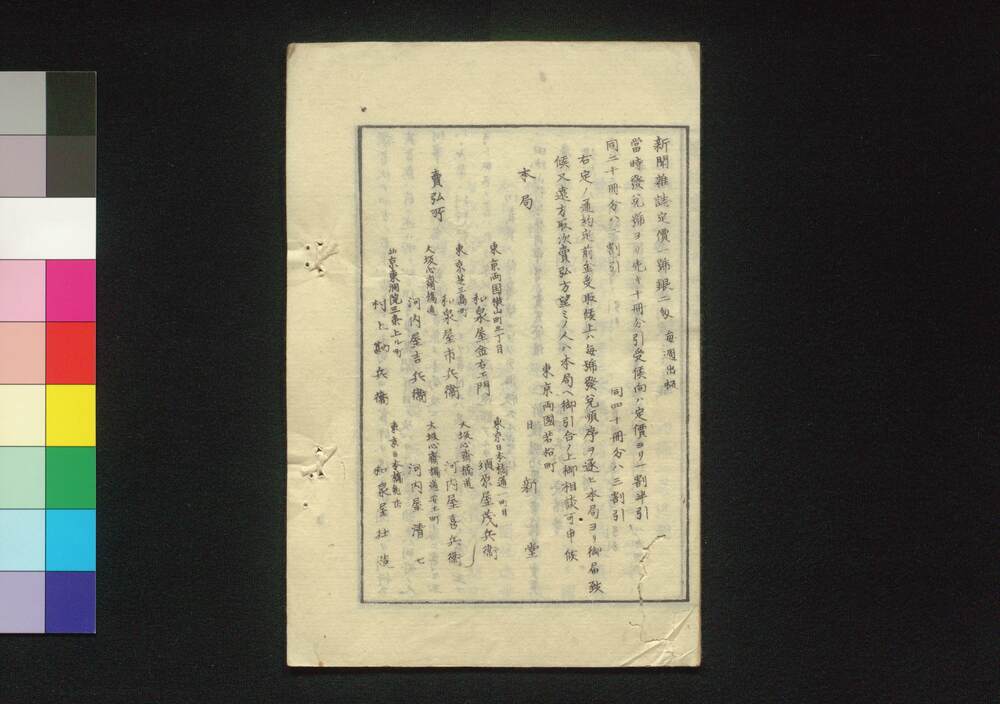 新聞雜誌定價一號銀二匁 毎週出板
當時發兌號ヨリ先キ十冊分引受候向ハ定價ヨリ一割半引
同二十冊分ハ二割引 同四十冊分ハ三割引
右定ノ通約定前金受取候上ハ毎號發兌順序ヲ逐ヒ本局ヨリ御届致
候又遠方取次賣弘方望ミノ人ハ本局ヘ御引合ノ上御相談可申候
東京両國若松町
本局 日新堂
賣弘所
東京両国横山町三丁目
和泉屋金右エ門
東京日本橋通一町目
須原屋茂兵衞
東京芝三島町
和泉屋市兵衞
大坂心齋橋通
河内屋喜兵衞
大坂心齋橋通
河内屋吉兵衞
大坂心齋橋通安土町
河内屋清七
京東洞院三条上ル町
村上勘兵衞
東京日本橋
和泉屋壮造